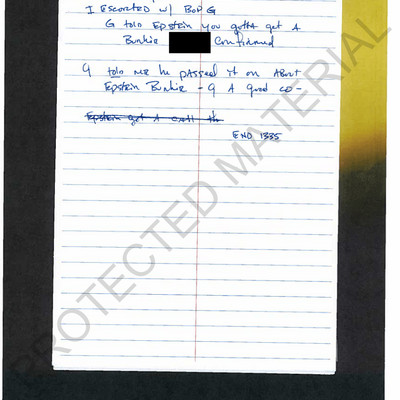 I ESCORTED w/ BOP G
G told Epstein you gotta get A
Bunkie confirmed
G told me he passed it on About
Epstein Bunkie - G A good CO -
Epstein got A call th
END 1335
PROTECTED MATERIAL